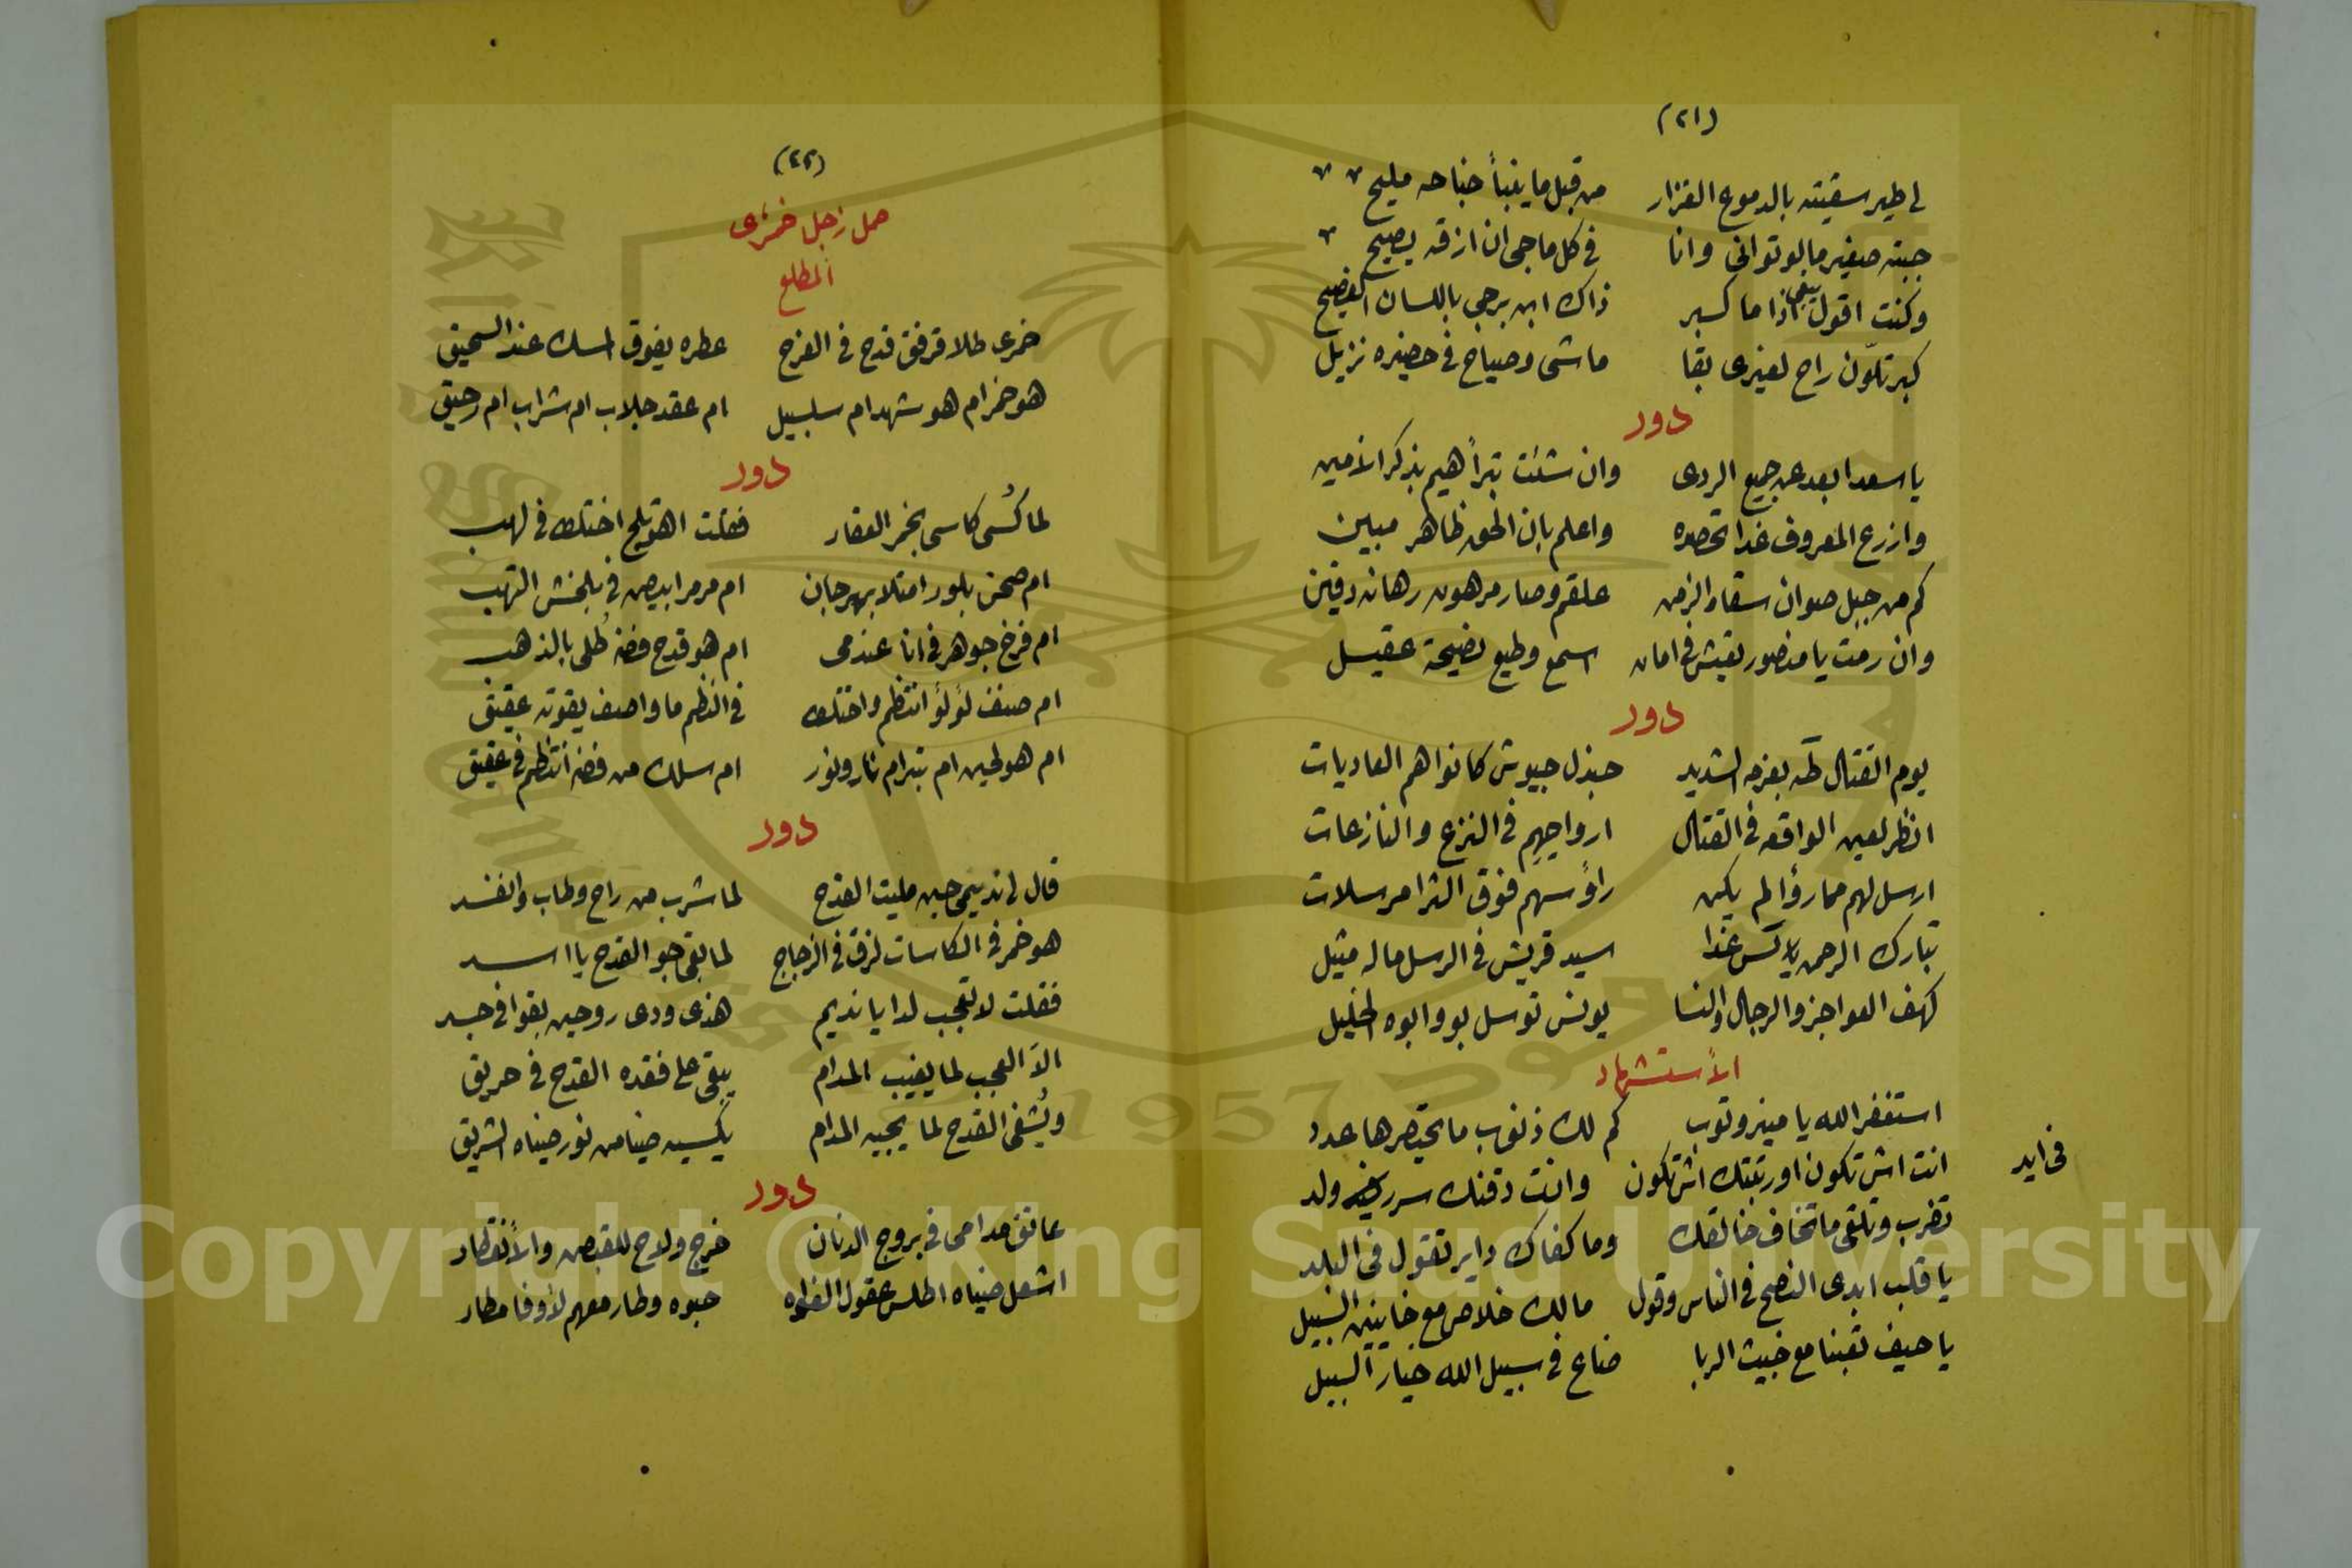 (٢١)
لي طير سقيته بالدموع الغزار من قبل ما ينبأ جناحه مليح
جبته صغير مالو تواني وانا في كل ما جي ان ازقه يصيح
وكنت اقول يبقى اذا ما كبر ذاك ابن برجي باللسان الفصيح
كبر تلوّن راح لغيري بقا ماشى وصياح في حضيره نزيل
دور
يا سعد ابعد عن جميع الردى وان شئت تبرأ هيم بذكر الامين
وازرع المعروف غدا تحصده واعلم بان الحق ظاهر مبين
كم من جبل صوان سقاه الزمن علقم وصار مرهون رهانه دفين
وان رمت يا منصور تعيش في امان اسمع وطيع نصيحة عقيل
دور
يوم القتال طه بعزمه الشديد جندل جيوش كانوا هم العاديات
انظر لعين الواقعه في القتال ارواحهم في النزع والنازعات
ارسل لهم ممارؤا لم يكن راؤسهم فوق الثرا مرسلات
تبارك الرحمن يلا كس غدا سيد قريش في الرسل ماله مثيل
كهف العواجز والرجال والنسا يونس توسل بو وابوه الخليل
الأستشهاد
استغفر الله يا وتوب كم لك ذنوب ما تحصرها عدد
انت اش تكون اورتبتك اش تكون وانت دقنك ولد
في ايد
تضرب وتلقى ما تخاف خالقك وما كفاك داير تقول في البلد
يا قلب ابدى النصح في الناس وقول مالك خلاص مع خاينين السبيل
يا حيف تعبنا مع خبيث الربا ضاع في سبيل الله خيار السبيل
(٢٢)
حمل زجل خمري
المطلع
خمري طلا قرقف قدح في الفرح عطره يفوق المسك عند السحيق
هو خمر ام هو شهد ام سلسبيل ام عقد جلاب ام شراب ام رحيق
دور
لما كُسى كاسى بخمر العقار فقلت اختلط في لهب
ام صحن بلور امتلا بهرجان ام مرمر ابيض في بلخش التهب
ام فرخ جوهر في انا عندمى ام هو قدح فضه طُلى بالذهب
ام صنف لؤلؤ انتظم واختلط في النظم ما واصف يقوته عقيق
ام هو لجين ام تبر ام نار ونور ام سلك من فضه انتظم في عقيق
دور
قال لي نديمى حين مليت القدح لما شرب من راح وطاب وانفسد
هو خمر في الكاسات لزق في الزجاج لما بقى جو القدح يا اسد
فقلت لا تعجب لدا يا نديم هذى ودى روحين بقوا في جسد
الاّ العجب لما يغيب المدام يبقى على فقده القدح في حريق
ويُشفى القدح لما يجيه المدام يكسيه ضيا من نور ضياه الشريق
دور
عاتق مدامى في بروج الدنان خرج ولاح للقبض والأنقطار
اشعل ضياه اطلس عقول حبوه وطار معهم لاوفا مطار
Copyright © King Saud University
1957